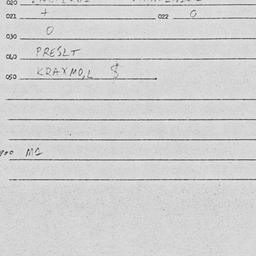 020
021 + 022 0
030 0
040 PRESLT
050 KRAXMO,L $
MG